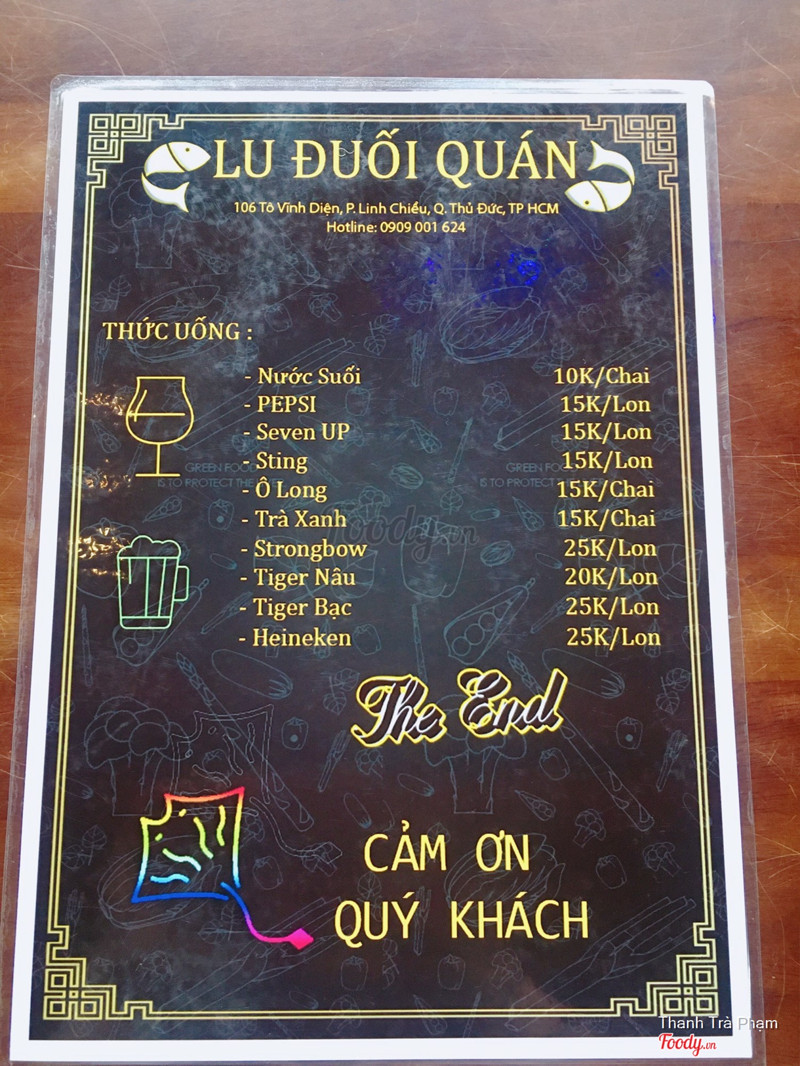 LU ĐUỐI QUÁN
106 Tô Vĩnh Diện, P. Linh Chiểu, Q. Thủ Đức, TP HCM
Hotline: 0909 001 624
THỨC UỐNG :
- Nước Suối 10K/Chai
- PEPSI 15K/Lon
- Seven UP 15K/Lon
- Sting 15K/Lon
- Ô Long 15K/Chai
- Trà Xanh 15K/Chai
- Strongbow 25K/Lon
- Tiger Nâu 20K/Lon
- Tiger Bạc 25K/Lon
- Heineken 25K/Lon
GREEN FOOD
IS TO PROTECT THE
GREEN FOOD
IS TO PROTECT THE
foody.vn
The End
CẢM ƠN
QUÝ KHÁCH
Thanh Trà Phạm
Foody.vn